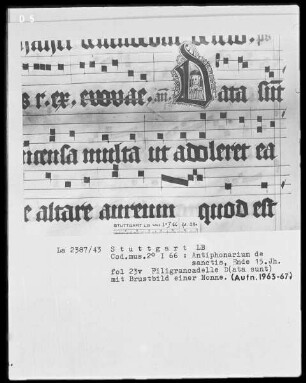 s r. ex. evovae. Data sunt
incensa multa ut adoleret ea
te altare aureum quod est
La 2387/43 Stuttgart LB
Cod.mus.2º I 66 : Antiphonarium de
sanctis, Ende 15.Jh.
fol 23v Filigranadelle D(ata sunt)
mit Brustbild einer Nonne. (Aufn.1963-67)